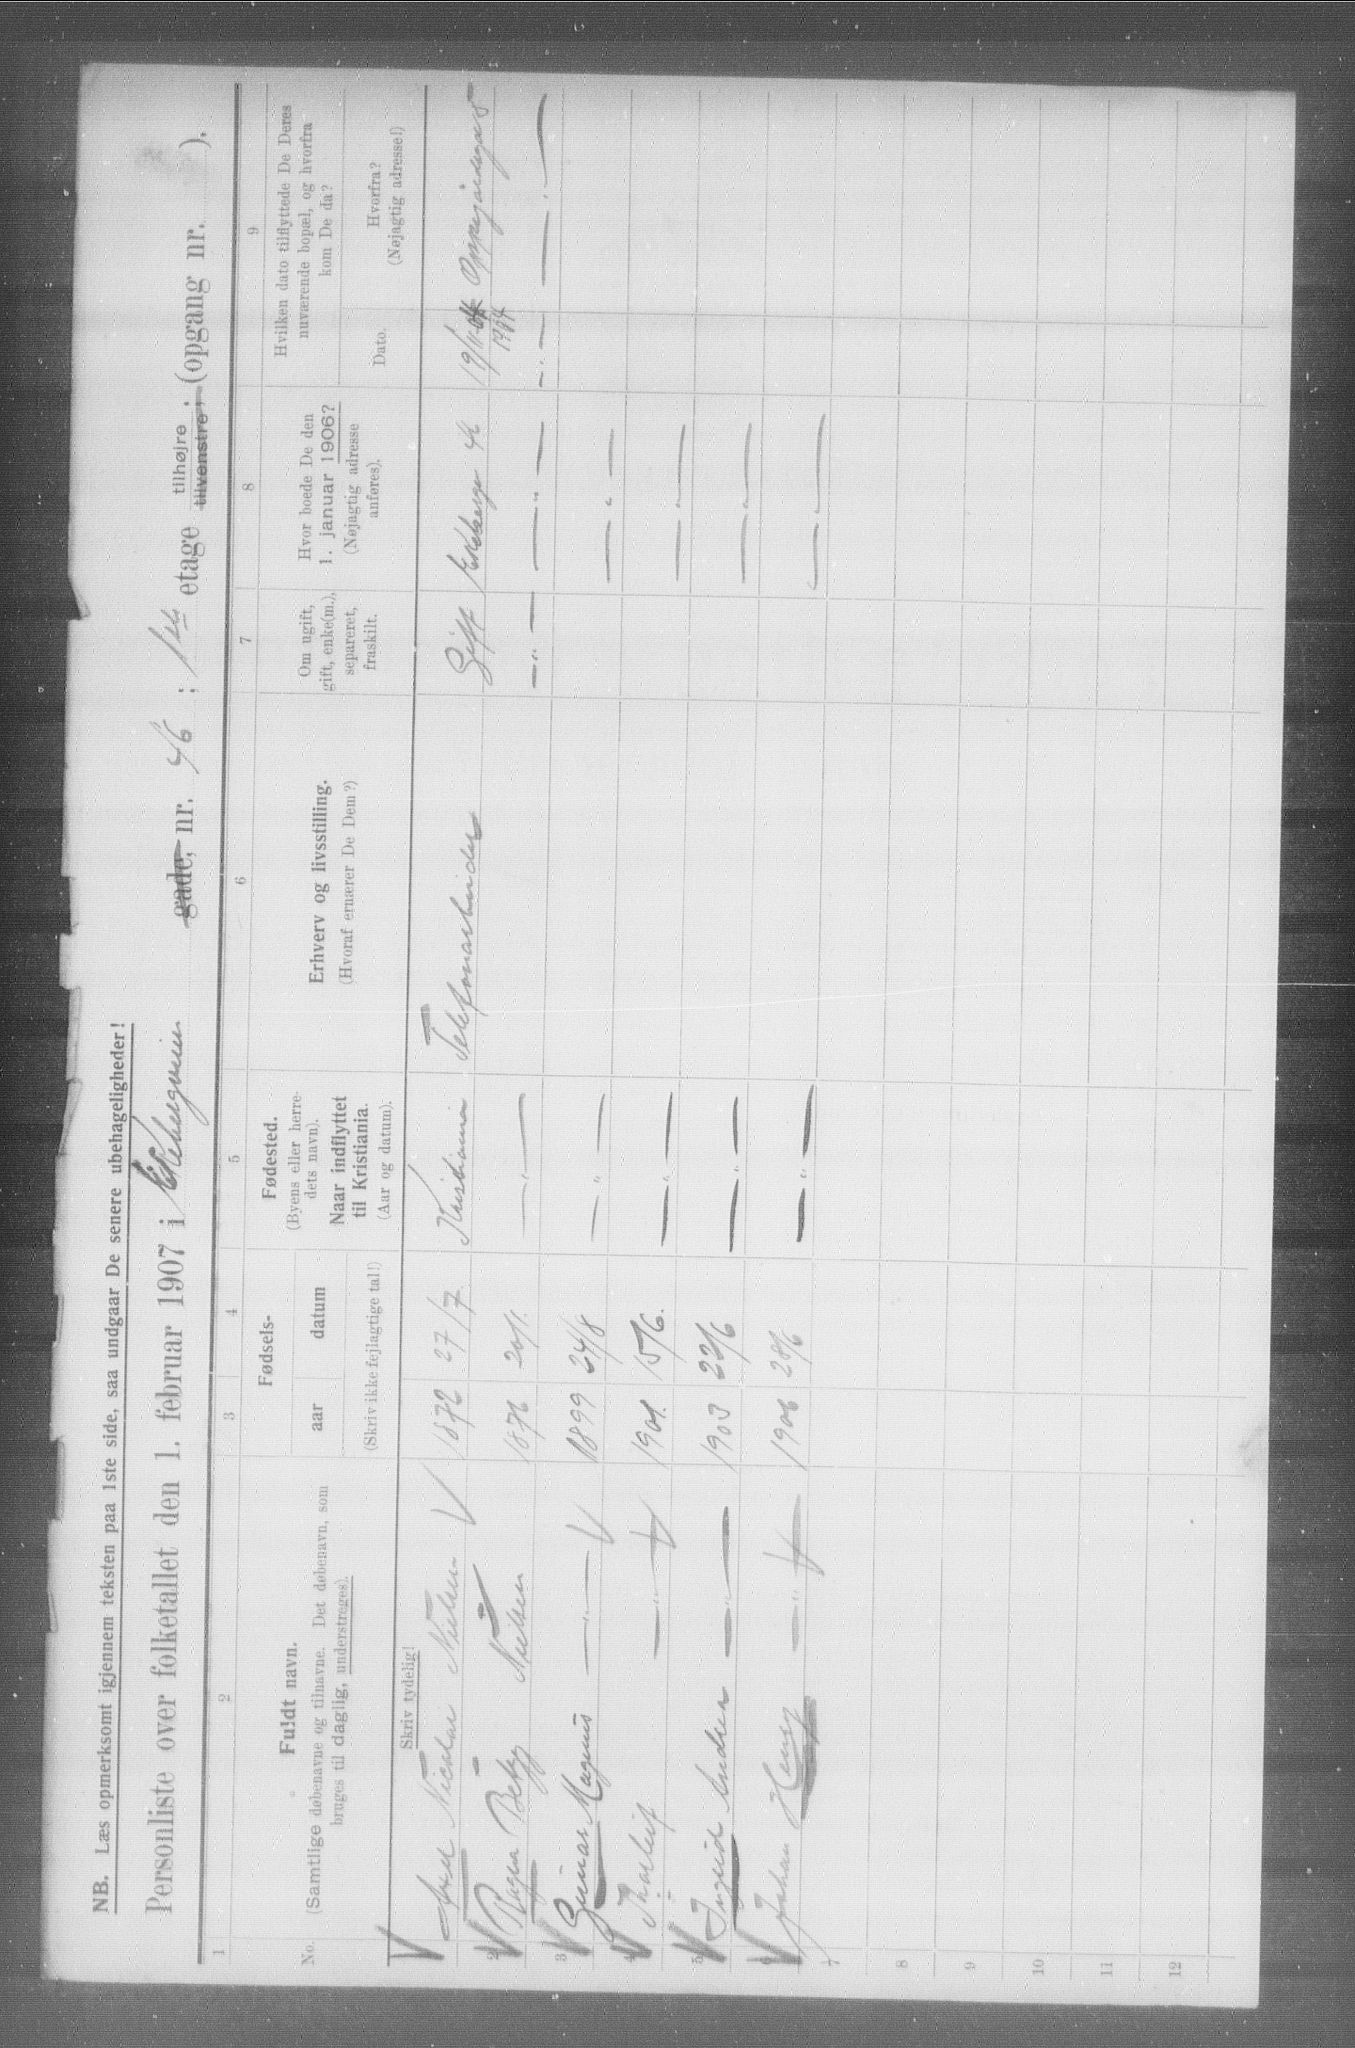 NB. Læs opmerksomt igjennem teksten paa 1ste side, saa undgaar De senere ubehageligheder!
Personliste over folketallet den 1. februar 1907 i Ekebergveien gade, nr. 46; 1ste etage tilhøjre tilvenstre; (opgang nr. ).
1 2 3 4 5 6 7 8 9
No.
Fuldt navn.
(Samtlige døbenavne og tilnavne. Det døbenavn, som
bruges til daglig, understreges).
Skriv tydelig!
Fødsels-
aar datum
(Skriv ikke fejlagtige tal!)
Fødested.
(Byens eller herre-
dets navn).
Naar indflyttet
til Kristiania.
(Aar og datum).
Erhverv og livsstilling.
(Hvoraf ernærer De Dem?)
Om ugift,
gift, enke(m.),
separeret,
fraskilt.
Hvor boede De den
1. januar 1906?
(Nøjagtig adresse
anføres).
Hvilken dato tilflyttede De Deres
nuværende bopæl, og hvorfra
kom De da?
Dato.
Hvorfra?
(Nøjagtig adresse!)
Axel Nicolai Nielsen 1872 27/7 Kristiania Telefonarbeider Gift 46 1904
2 Ragna Betzy Nielsen 1876 20/1. —"— —"— —"— —"— —"—
3 Gunnar Magnus —"— 1899 24/8 —"— —"—
4 Thorleif —"— 1901. 15/6. —"— —"—
5 Ingrid Andrea —"— 1903 23/6 —"— —"—
6 Johan Henry —"— 1906 28/6 —"— —"—
7
8
9
10
11
12